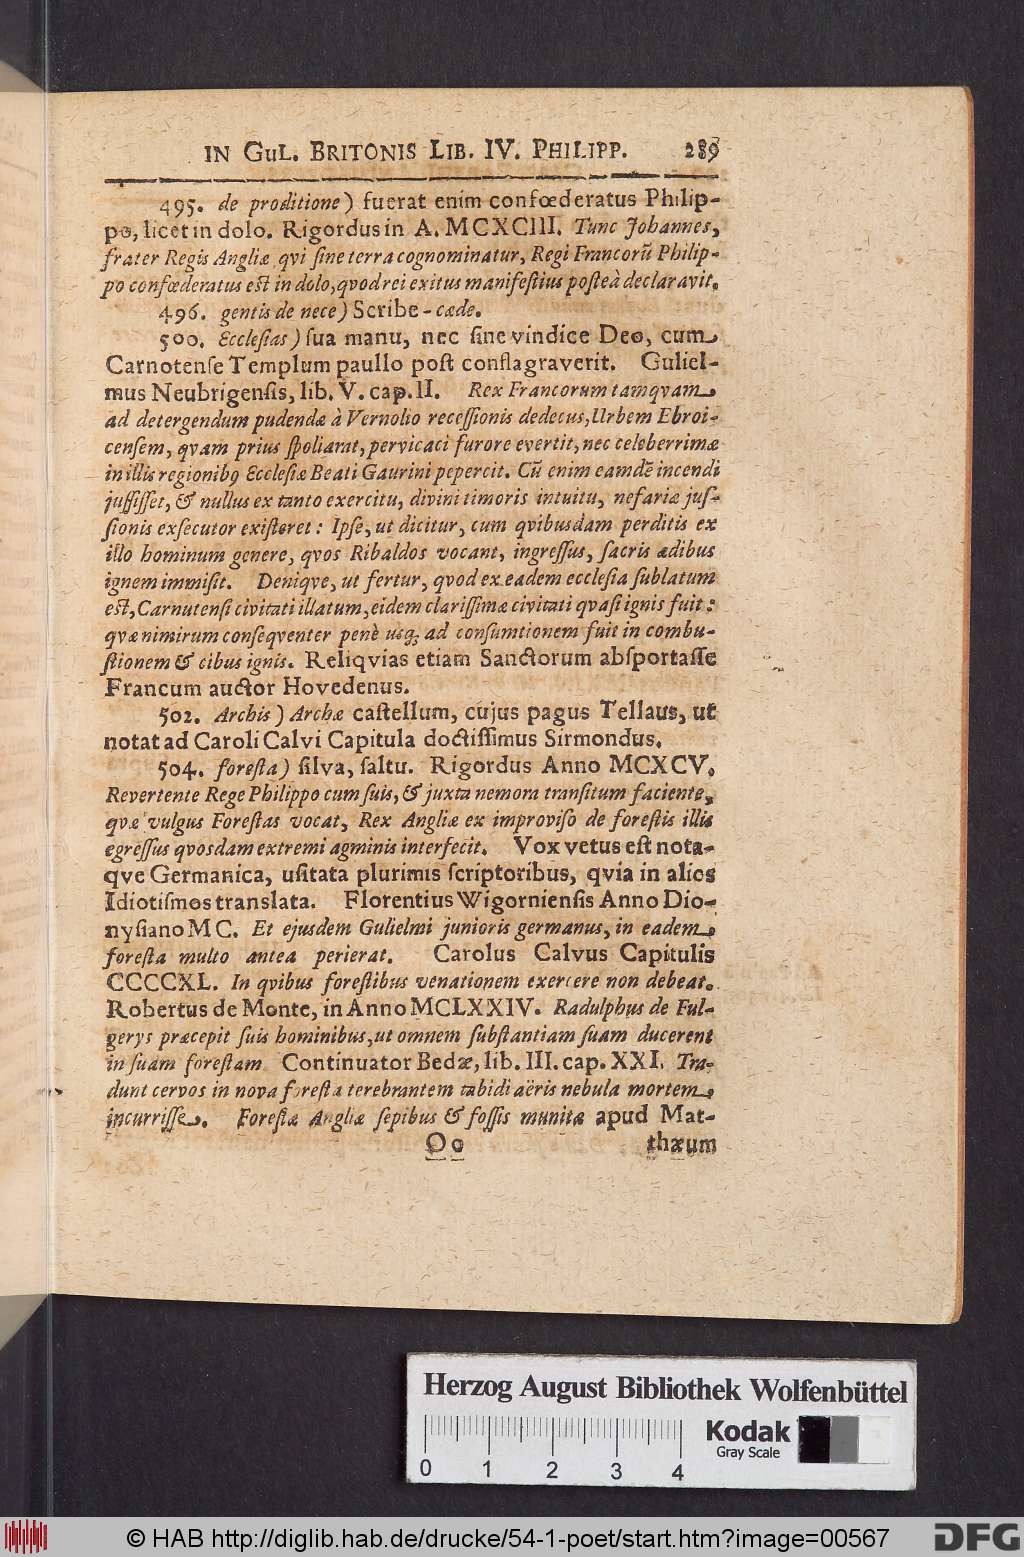 IN GuL. BRITONIS LIB. IV. PHILIPP. 289
495. de proditione) fuerat enim confœderatus Philip-
po, licet in dolo. Rigordus in A. MCXCIII. Tunc Johannes,
frater Regis Angliæ, qvi ſine terra cognominatur, Regi Francorũ Philip-
po confœderatus eſt in dolo, qvod rei exitus manifeſtius poſteà declaravit.
496. gentis de nece) Scribe - cæde.
500. Eccleſias) ſua manu, nec ſine vindice Deo, cum
Carnotenſe Templum paullo poſt conflagraverit. Guliel-
mus Neubrigenſis, lib. V. cap. II. Rex Francorum tamqvam
ad detergendum pudendæ à Vernolio receſſionis dedecus, Urbem Ebroi-
cenſem, qvam prius ſpoliarat, pervicaci furore evertit, nec celeberrimæ
in illis regionibꝰ Eccleſiæ Beati Gaurini pepercit. Cũ enim eamdẽ incendi
juſſiſſet, & nullus ex tanto exercitu, divini timoris intuitu, nefariæ juſ-
ſionis exſecutor exiſteret: Ipſe, ut dicitur, cum qvibusdam perditis ex
illo hominum genere, qvos Ribaldos vocant, ingreſſus, ſacris ædibus
ignem immiſit. Deniqve, ut fertur, qvod ex eadem eccleſia ſublatum
eſt, Carnutenſi civitati illatum, eidem clariſſimæ civitati qvaſi ignis fuit:
qvæ nimirum conſeqventer penè usq; ad conſumtionem fuit in combu-
ſtionem & cibus ignis. Reliqvias etiam Sanctorum abſportaſſe
Francum auctor Hovedenus.
502. Archis) Archæ caſtellum, cujus pagus Tellaus, ut
notat ad Caroli Calvi Capitula doctiſſimus Sirmondus.
504. foreſta) ſilva, ſaltu. Rigordus Anno MCXCV.
Revertente Rege Philippo cum ſuis, & juxta nemora tranſitum faciente,
qvæ vulgus Foreſtas vocat, Rex Angliæ ex improviſo de foreſtis illis
egreſſus qvosdam extremi agminis interfecit. Vox vetus eſt nota-
qve Germanica, uſitata plurimis ſcriptoribus, qvia in alios
Idiotiſmos translata. Florentius Wigornienſis Anno Dio-
nyſiano MC. Et ejusdem Gulielmi junioris germanus, in eadem
foreſta multo antea perierat. Carolus Calvus Capitulis
CCCCXL. In qvibus foreſtibus venationem exercere non debeat.
Robertus de Monte, in Anno MCLXXIV. Radulphus de Ful-
gerys præcepit ſuis hominibus, ut omnem ſubſtantiam ſuam ducerent
in ſuam foreſtam Continuator Bedæ, lib. III. cap. XXI. Tra-
dunt cervos in nova foreſta terebrantem tabidi aëris nebula mortem
incurriſſe. Foreſtæ Angliæ ſepibus & foſſis munitæ apud Mat-
Oo thæum
Herzog August Bibliothek Wolfenbüttel
Kodak
Gray Scale
0 1 2 3 4
© HAB http://diglib.hab.de/drucke/54-1-poet/start.htm?image=00567
DFG